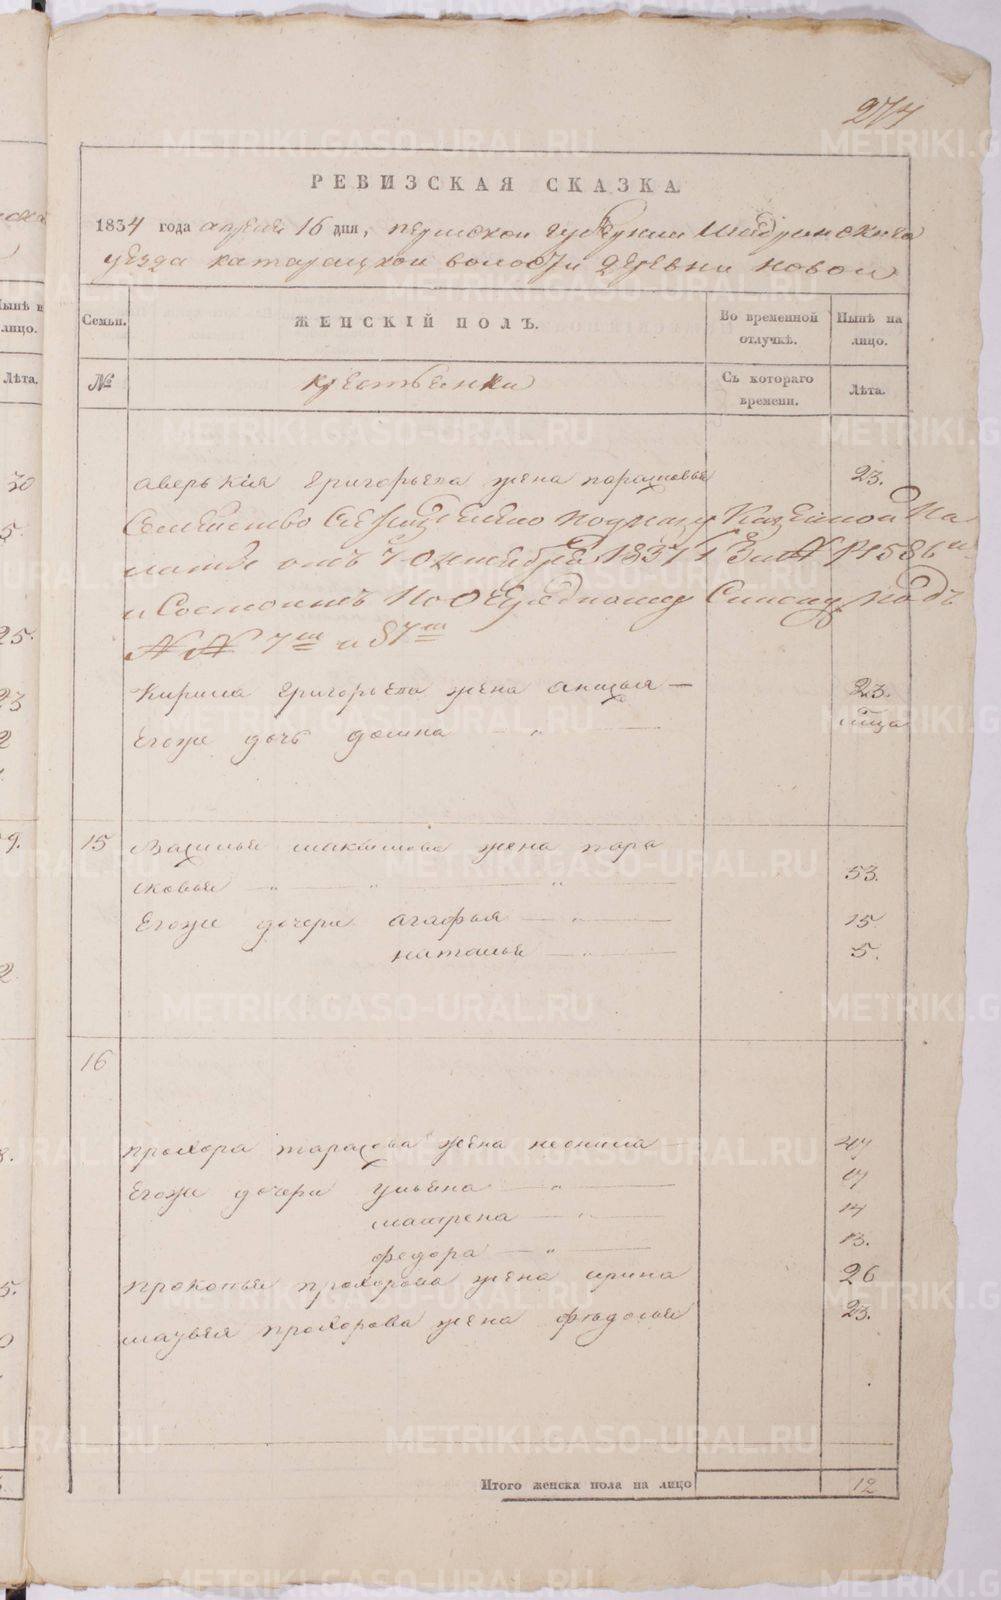 274
РЕВИЗСКАЯ СКАЗКА
1834 года апреля 16 дня, пермской губернии Шадринскаго
уезда катарацкой волости деревни новой
Семьи. ЖЕНСКІЙ ПОЛЪ. Во временной отлучкѣ. Нынѣ на лицо.
№ крестьянки Съ котораго времени. Лѣта.
аверькия григорьева жена парасковья 23.
Семейство Сіе
Казенной Па
латы отъ 7 октября 1837 г За №
и Состоитъ По Очередному Списку Подъ
№№ 7м и 87м
Кирила григорьева жена анисья — 23.
Егоже дочь домна — „ —
15 Василья максимова жена пара
сковья — „ — „ — „ — 53.
Егоже дочери агафья — „ — 15
наталья — „ — 5.
16
прохора тарасова жена неонила 47
Егоже дочери ульяна — „ — 17
матрена — „ — 14
федора — „ — 13.
прокопья прохорова жена ирина 26
прохорова жена федосья 23.
Итого женска пола на лицо 12
METRIKI.GASO-URAL.RU